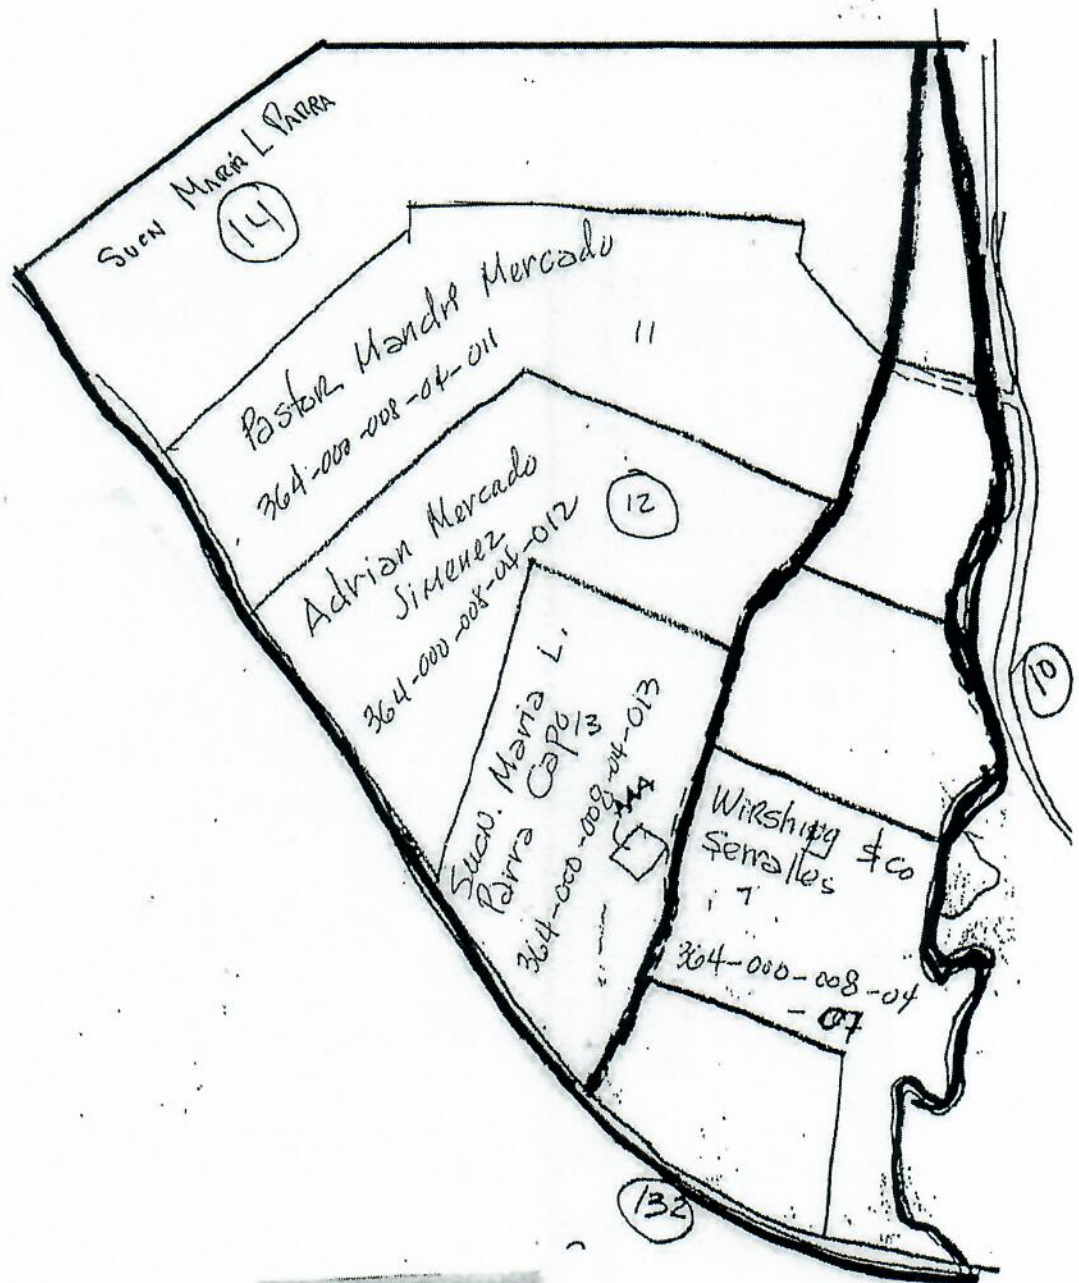 Sucn Maria L Parra
14
Pastor Mandri Mercado
11
364-000-008-04-011
Adrian Mercado
Jimenez
12
364-000-008-04-012
Sucn. Maria L.
Parra Capo
13
364-000-008-04-013
AAA
Wirshing & Co
Serralles
7
364-000-008-04
-07
10
132